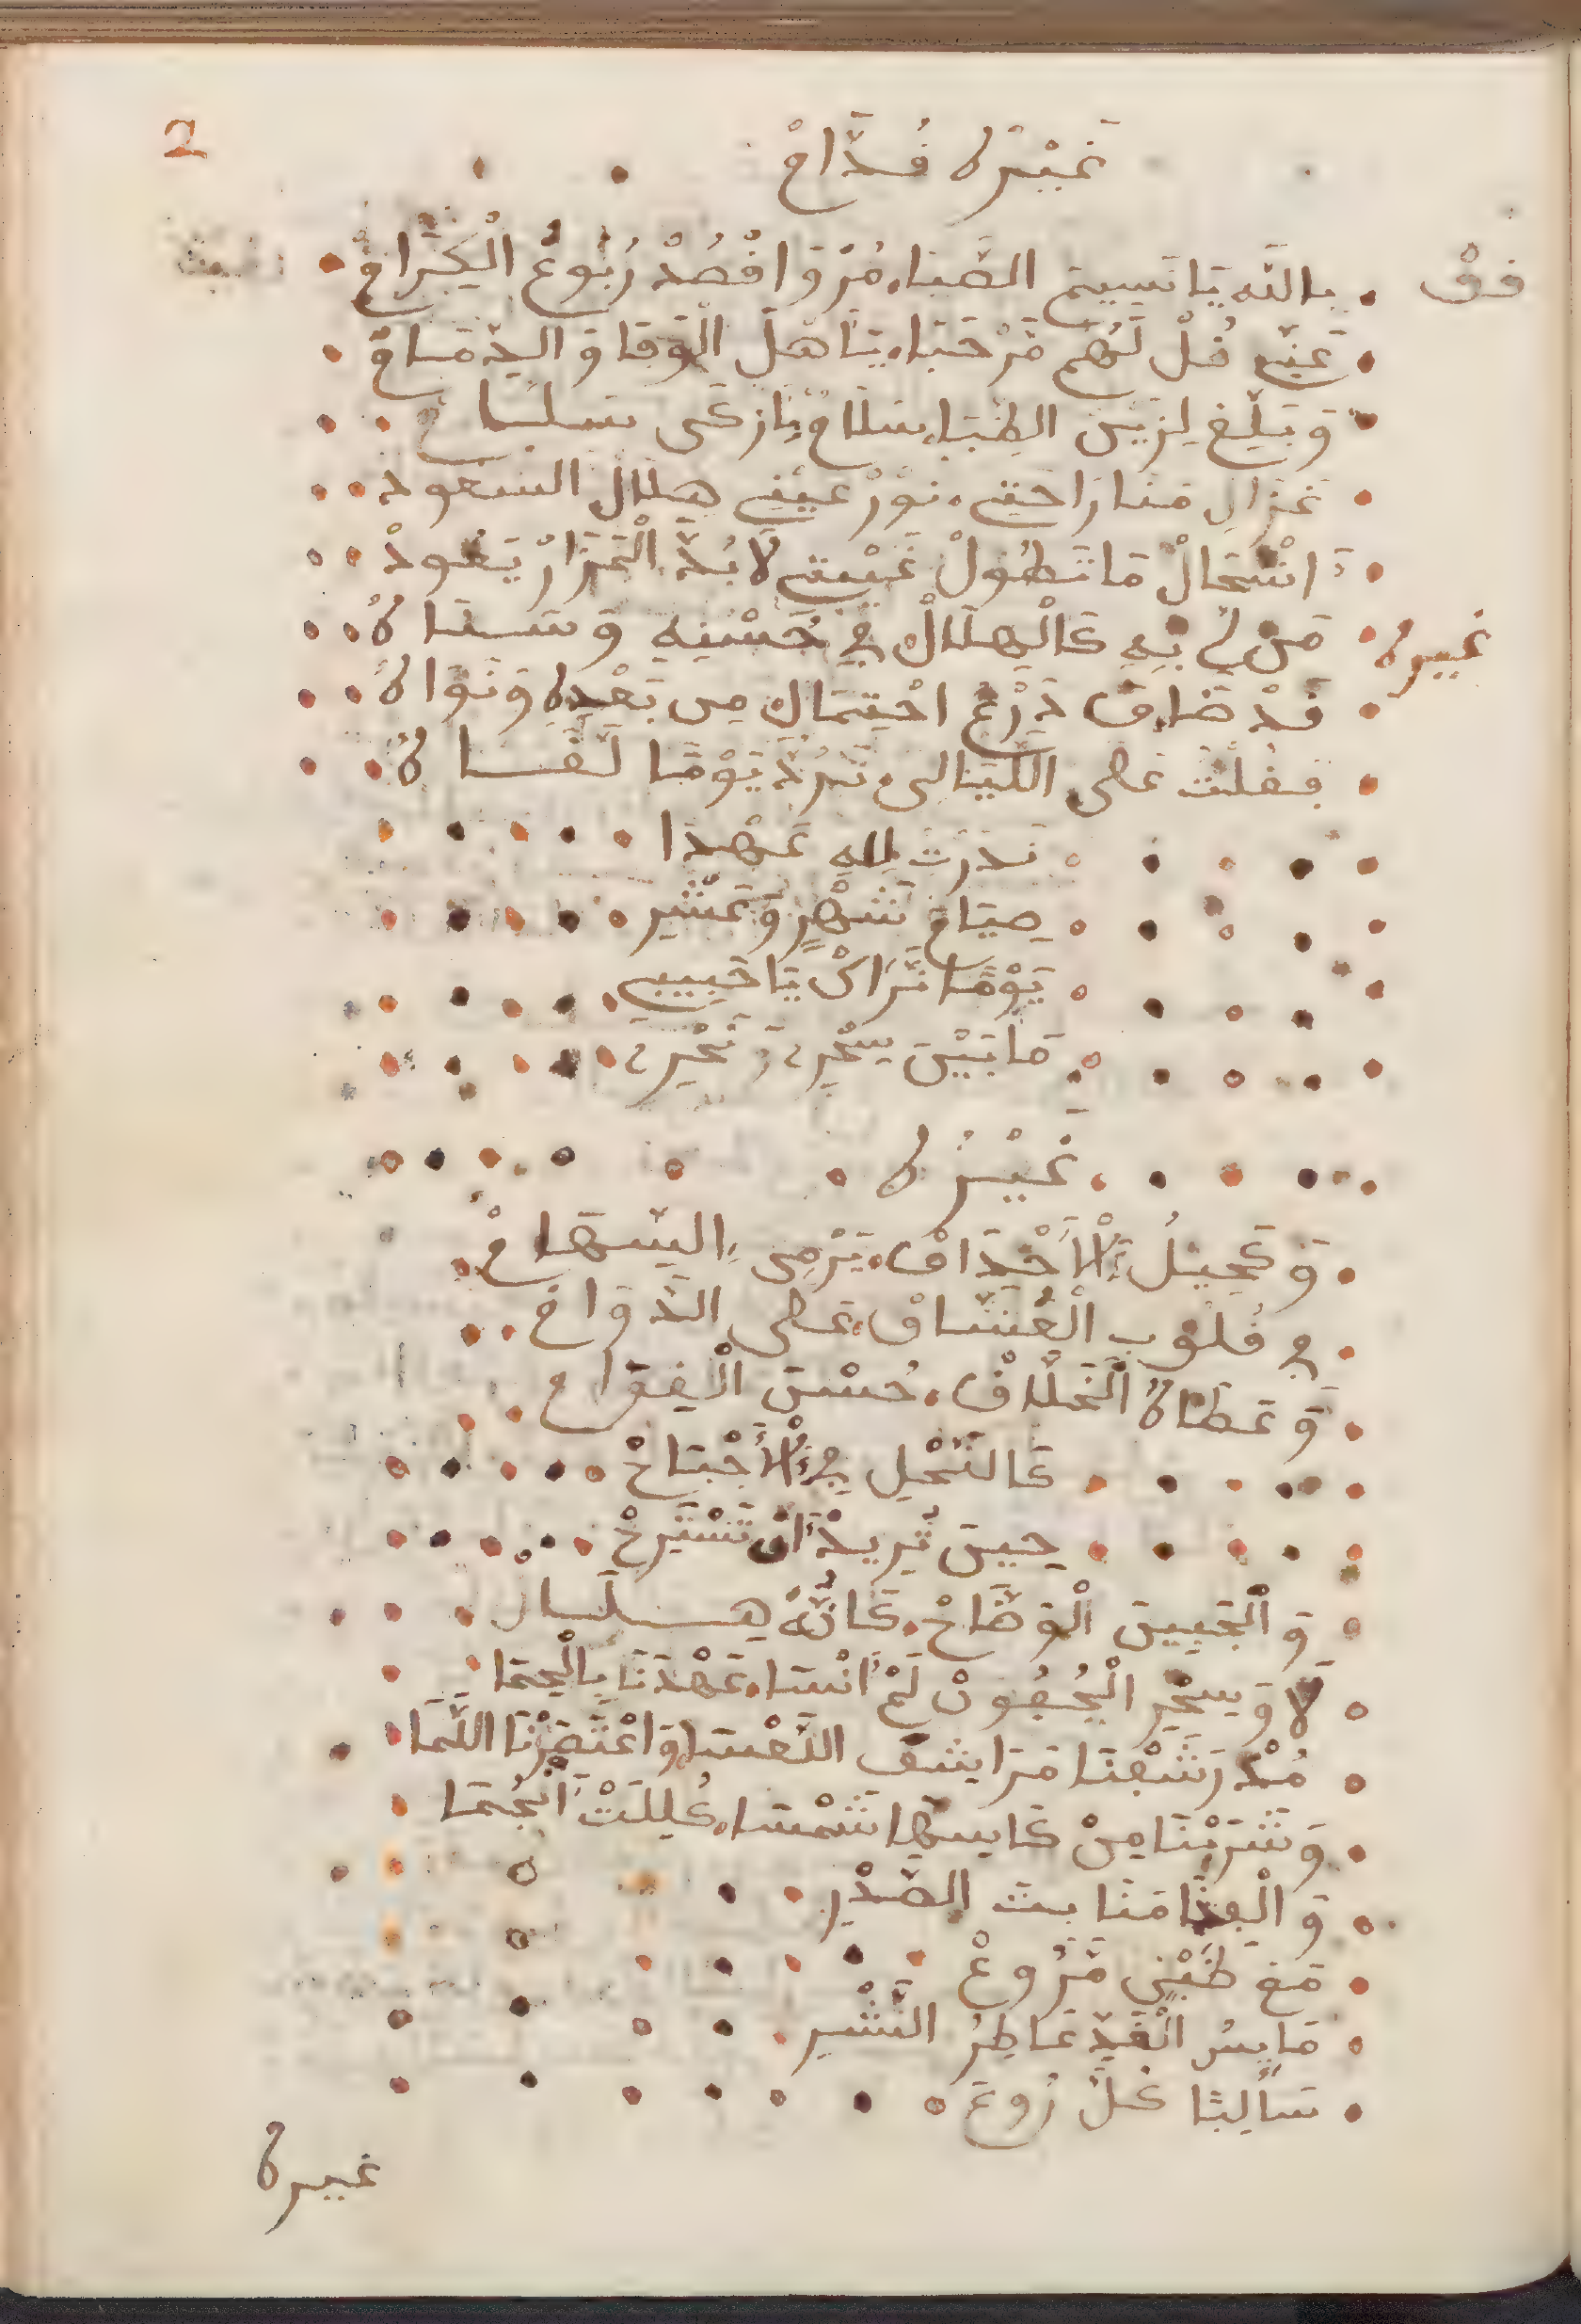 2
غَيْرُه قُدَّامْ
فق
بالله يَا نَسِيمَ الصَّبَا، مُرْ وَاقْصُدْ رُبُوعْ الْكِرَامْ
عَنِّي قُلْ لَهُم مَرْحَبَا، يَاهْلَ الْوَفَا وَالذِّمَامْ
وَبَلِّغ لِزَيْنِ الظِّبَا، سَلَامْ بَازْكَى سَلَام
غَزَالِ مُنَا رَاحَتِي، نُورْ عَيْنِي هِلَالْ السُّعُودْ
اشْحَالْ مَا تَطُولْ غَيْبَتِي لَا بُدَّ الْمَزَارْ يَعُودْ
غيره
مَن لِي بِهِ كَالْهِلَالْ فِي حُسْنِهِ وَسَنَاهُ
قَدْ ضَاقَ ذَرْعُ احْتِمَالِي مِن بَعْدِهِ وَنَوَاهُ
فَقُلْتُ عَلَى اللَّيَالِي، تَرُدَّ يَوْمًا لِقَاهُ
نَذَرْتُ لِلهِ عَهْدًا
صِيَامَ شَهْرٍ وَعَشْرِ
يَوْمًا نَرَاكْ يَا حَبِيبِي
مَا بَيْنَ سِحْرِي وَنَحْرِي
غَيْرُه
وَكَحِيلُ الْأَحْدَاقْ، يَرْمِي السِّهَامْ
فِي قُلُوبِ الْعُشَّاقْ، عَلَى الدَّوَامْ
وَعَطَاهُ الْخَلَّاقْ، حُسْنَ الْقِوَامْ
كَالنَّحْلِ فِي الْأَجْبَاحْ
حِينَ تُرِيدْ أَنْ تَسْتَرِحْ
وَالْجَبِينَ الْوَضَّاحْ، كَأَنَّهُ هِلَال
لَا وَسِحْرِ الْجُفُونْ لَمْ أَنْسَا، عَهْدَنَا بِالْحِمَا
مُذْ رَشَفْنَا مَرَاشِفَ اللَّعْسَا، وَاعْتَصَرْنَا اللَّمَا
وَشَرِبْنَا مِنْ كَاسِهَا شَمْسَا، كُلِّلَتْ أَنْجُمَا
وَالْتَقَا مَنَابِتَ الصَّدْرِ
مَعَ ظَبْيٍ مَرُوعْ
مَايِسُ الْقَدِّ عَاطِرُ النَّشْرِ
سَالِبًا كُلَّ رُوعَ
غيره